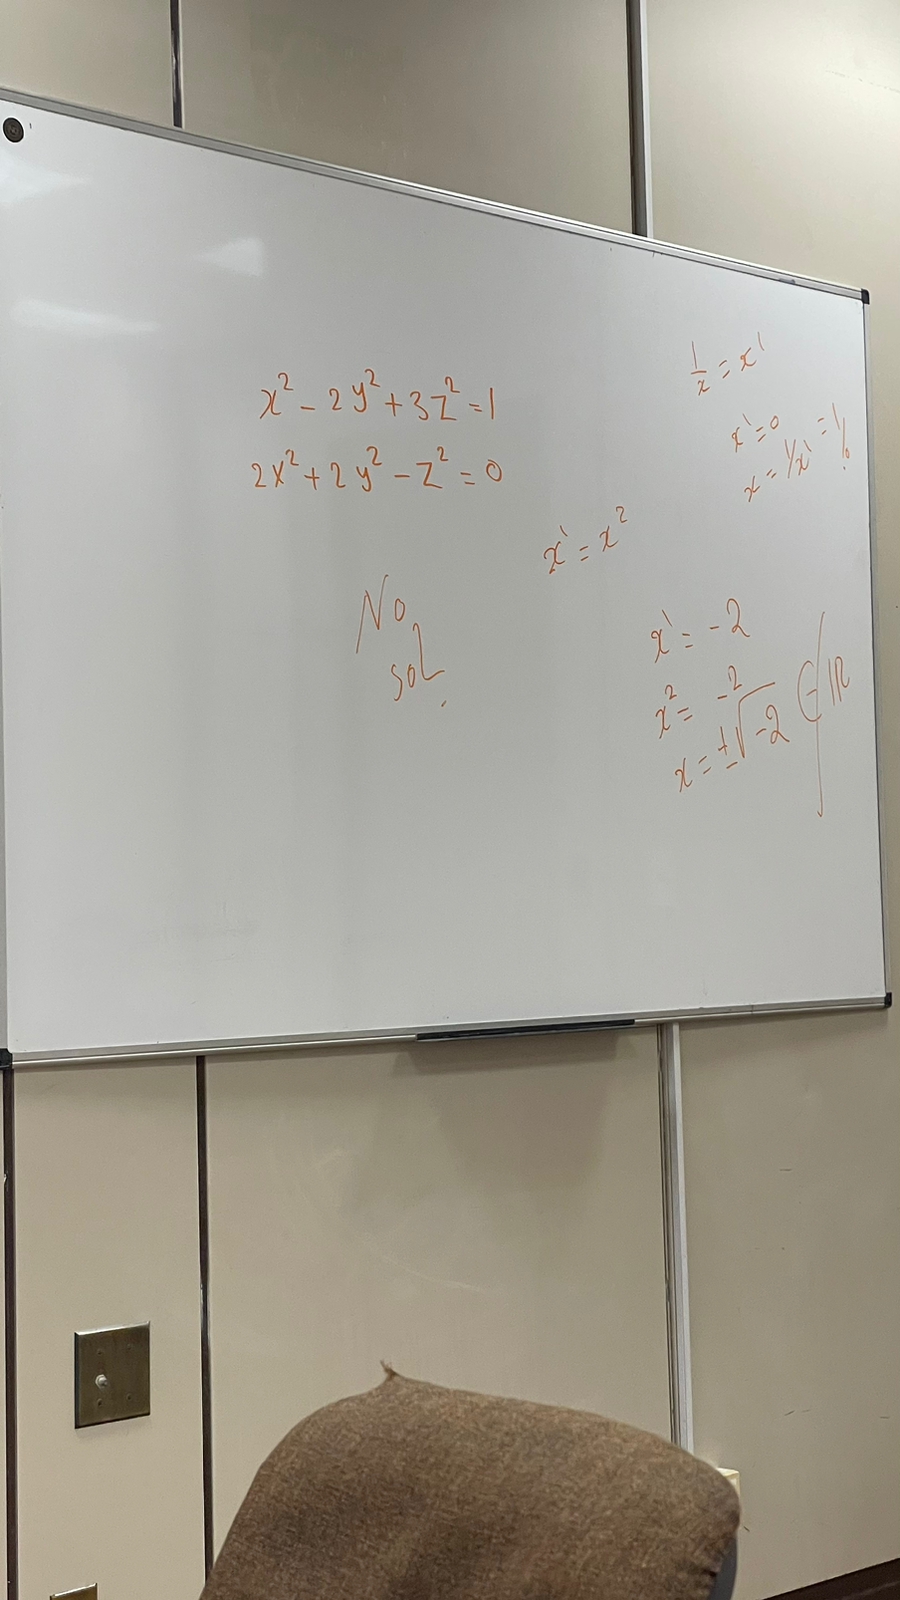 x² - 2y² + 3z² = 1
2x² + 2y² - z² = 0
No
sol.
x' = x²
1/x = x'
x' = 0
x = 1/x' = 1/0
x' = -2
x² = -2
x = ±√-2 ∉ ℝ